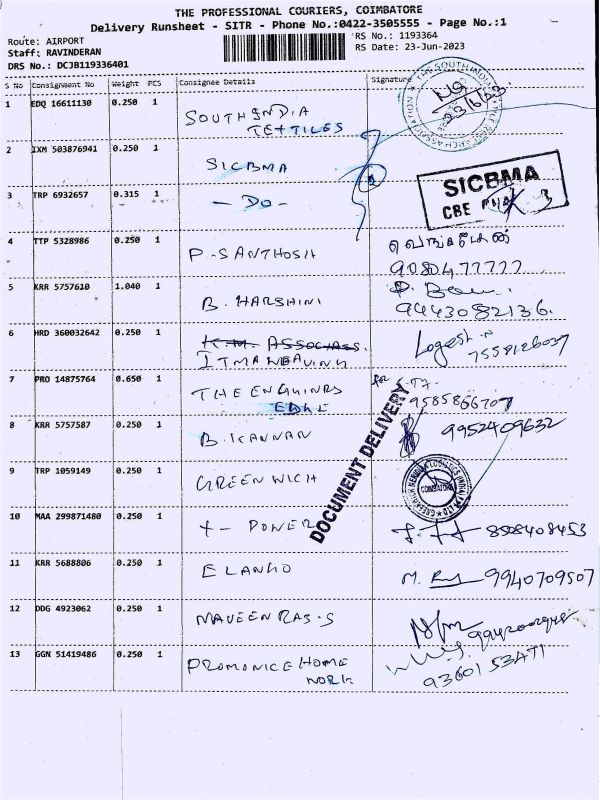 THE PROFESSIONAL COURIERS, COIMBATORE
Delivery Runsheet - SITR - Phone No.:0422-3505555 - Page No.:1
Route: AIRPORT
RS No.: 1193364
Staff: RAVINDERAN
RS Date: 23-Jun-2023
DRS No.: DCJB119336401
S No Consignment No Weight PCS Consignee Details Signature
1 EDQ 16611130 0.250 1 SOUTH INDIA
TEXTILES
23/6/23
2 IXM 503876941 0.250 1 SICBMA
SICBMA
CBE
3 TRP 6932657 0.315 1 - DO -
4 TTP 5328986 0.250 1 P. SANTHOSH
9080477777
5 KRR 5757610 1.040 1 B. HARSHINI
9443082136.
6 HRD 360032642 0.250 1 K.M. ASSOCIASS.
ITMA WEAVING
Logesh. n
7558126037
7 PRO 14875764 0.650 1 THE ENGUINRS
EDGE
for
9585866707
DOCUMENT DELIVERY
8 KRR 5757587 0.250 1 B. KANNAN 9952409632
9 TRP 1059149 0.250 1 GREENWICH
COIMBATORE
10 MAA 299871480 0.250 1 X - POWER 8508408453
11 KRR 5688806 0.250 1 ELANGO 9940709507
12 DDG 4923062 0.250 1 NAVEEN RAJ. S
13 GGN 51419486 0.250 1 PROMONICE HOME
WORK